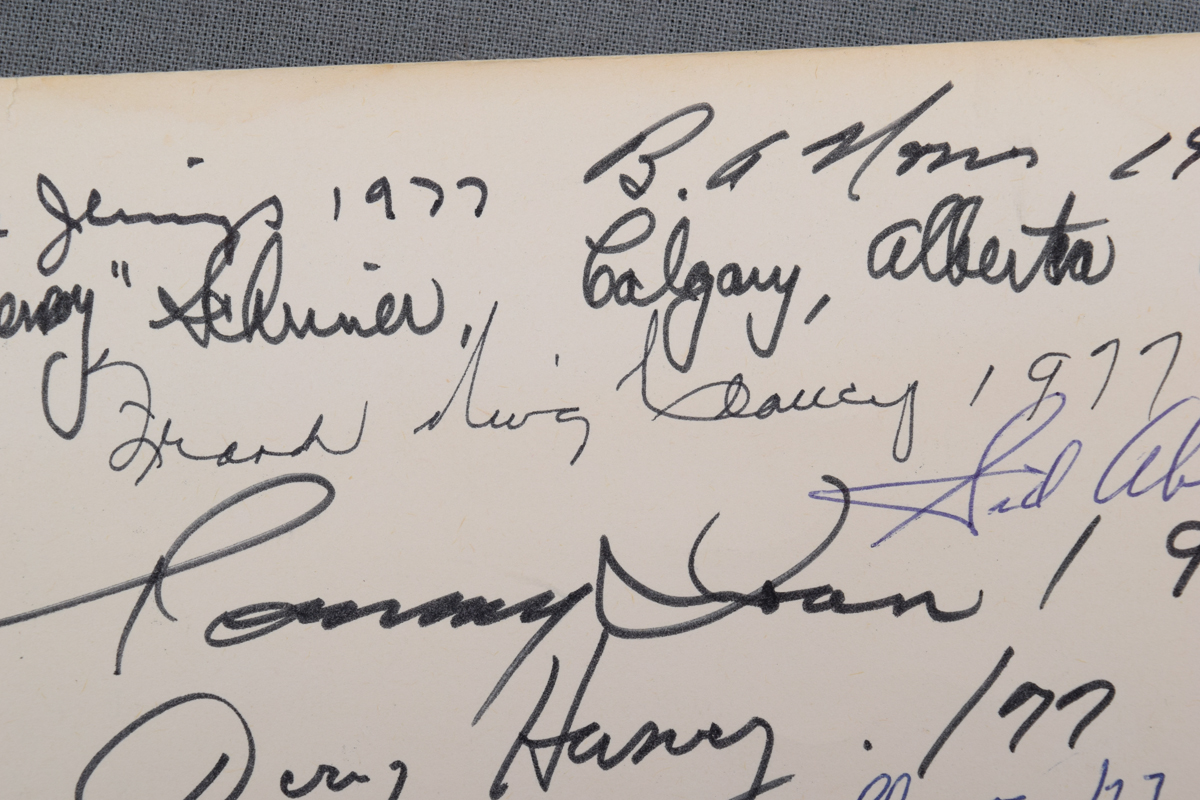 Jennings 1977
B. A Morris 19
" Schriner, Calgary, Alberta
Frank King Clancy 1977
Sid Ab
Tommy Ivan 19
Doug Harvey. '77